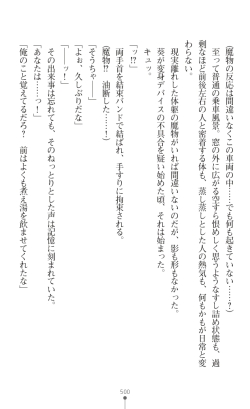 (魔物の反応は間違いなくこの車両の中……でも何も起きていない……?)
至って普通の乗車風景。窓の外に広がる空すら恨めしく思うようなすし詰め状態も、過
剰なほど前後左右の人と密着する体も、蒸し蒸しとした人の熱気も、何もかもが日常と変
わらない。
現実離れした体躯の魔物がいれば間違いないのだが、影も形もなかった。
葵が変身デバイスの不具合を疑い始めた頃、それは始まった。
キュッ。
「っ!?」
両手首を結束バンドで結ばれ、手すりに拘束される。
(魔物!? 油断した……!)
「そうちゃ━━」
「よお、久しぶりだな」
「━━ッ!」
その出来事は忘れても、そのねっとりとした声は記憶に刻まれていた。
「あなたは……っ!」
「俺のこと覚えてるだろ? 前はよくも煮え湯を飲ませてくれたな」
500